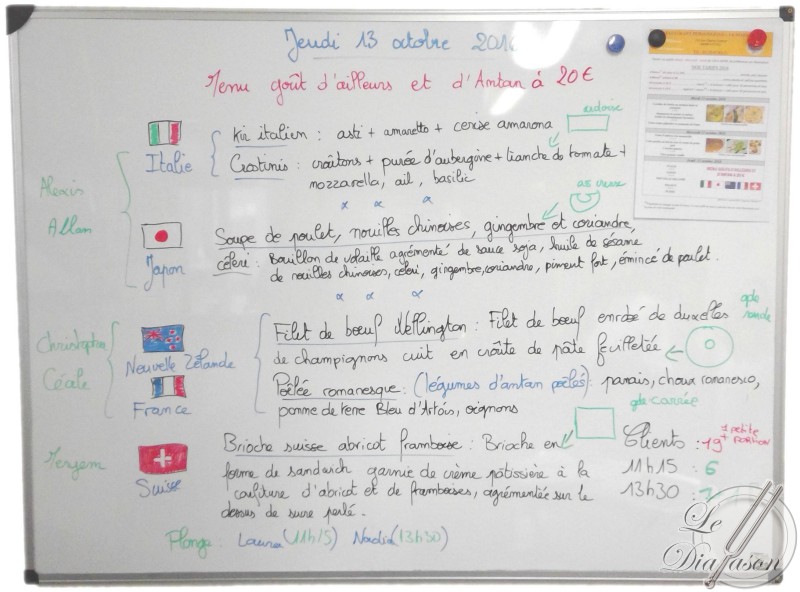 Jeudi 13 octobre 201
Menu goût d'ailleurs et d'Antan à 20€
ardoise
Kir italien : asti + amaretto + cerise amarona
Italie
Crostinis : croûtons + purée d'aubergine + tranche de tomate +
mozzarella, ail, basilic
Alexis
Allan
Soupe de poulet, nouilles chinoises, gingembre et coriandre,
Japon
céleri : Bouillon de volaille agrémenté de sauce soja, huile de sésame
de nouilles chinoises, céleri, gingembre, coriandre, piment fort, émincé de poulet.
gde ronde
Filet de boeuf Wellington : Filet de boeuf enrobé de duxelles
Christopher
Nouvelle Zélande
de champignons cuit en croûte de pâte feuilletée
Cécile
France
Poêlée romanesque : (légumes d'antan poêlés) : panais, choux romanesco,
pomme de terre Bleu d'Artois, oignons
gde carrée
Meryem
Suisse
Brioche suisse abricot framboise : Brioche en
forme de sandwich garnie de crème pâtissière à la
confiture d'abricot et de framboises, agrémentée sur le
dessus de sucre perlé.
Clients : 19 + 1 petite portion
11h15 : 6
13h30 :
Plonge : Laura (11h15) Nadia (13h30)
Le Diapason